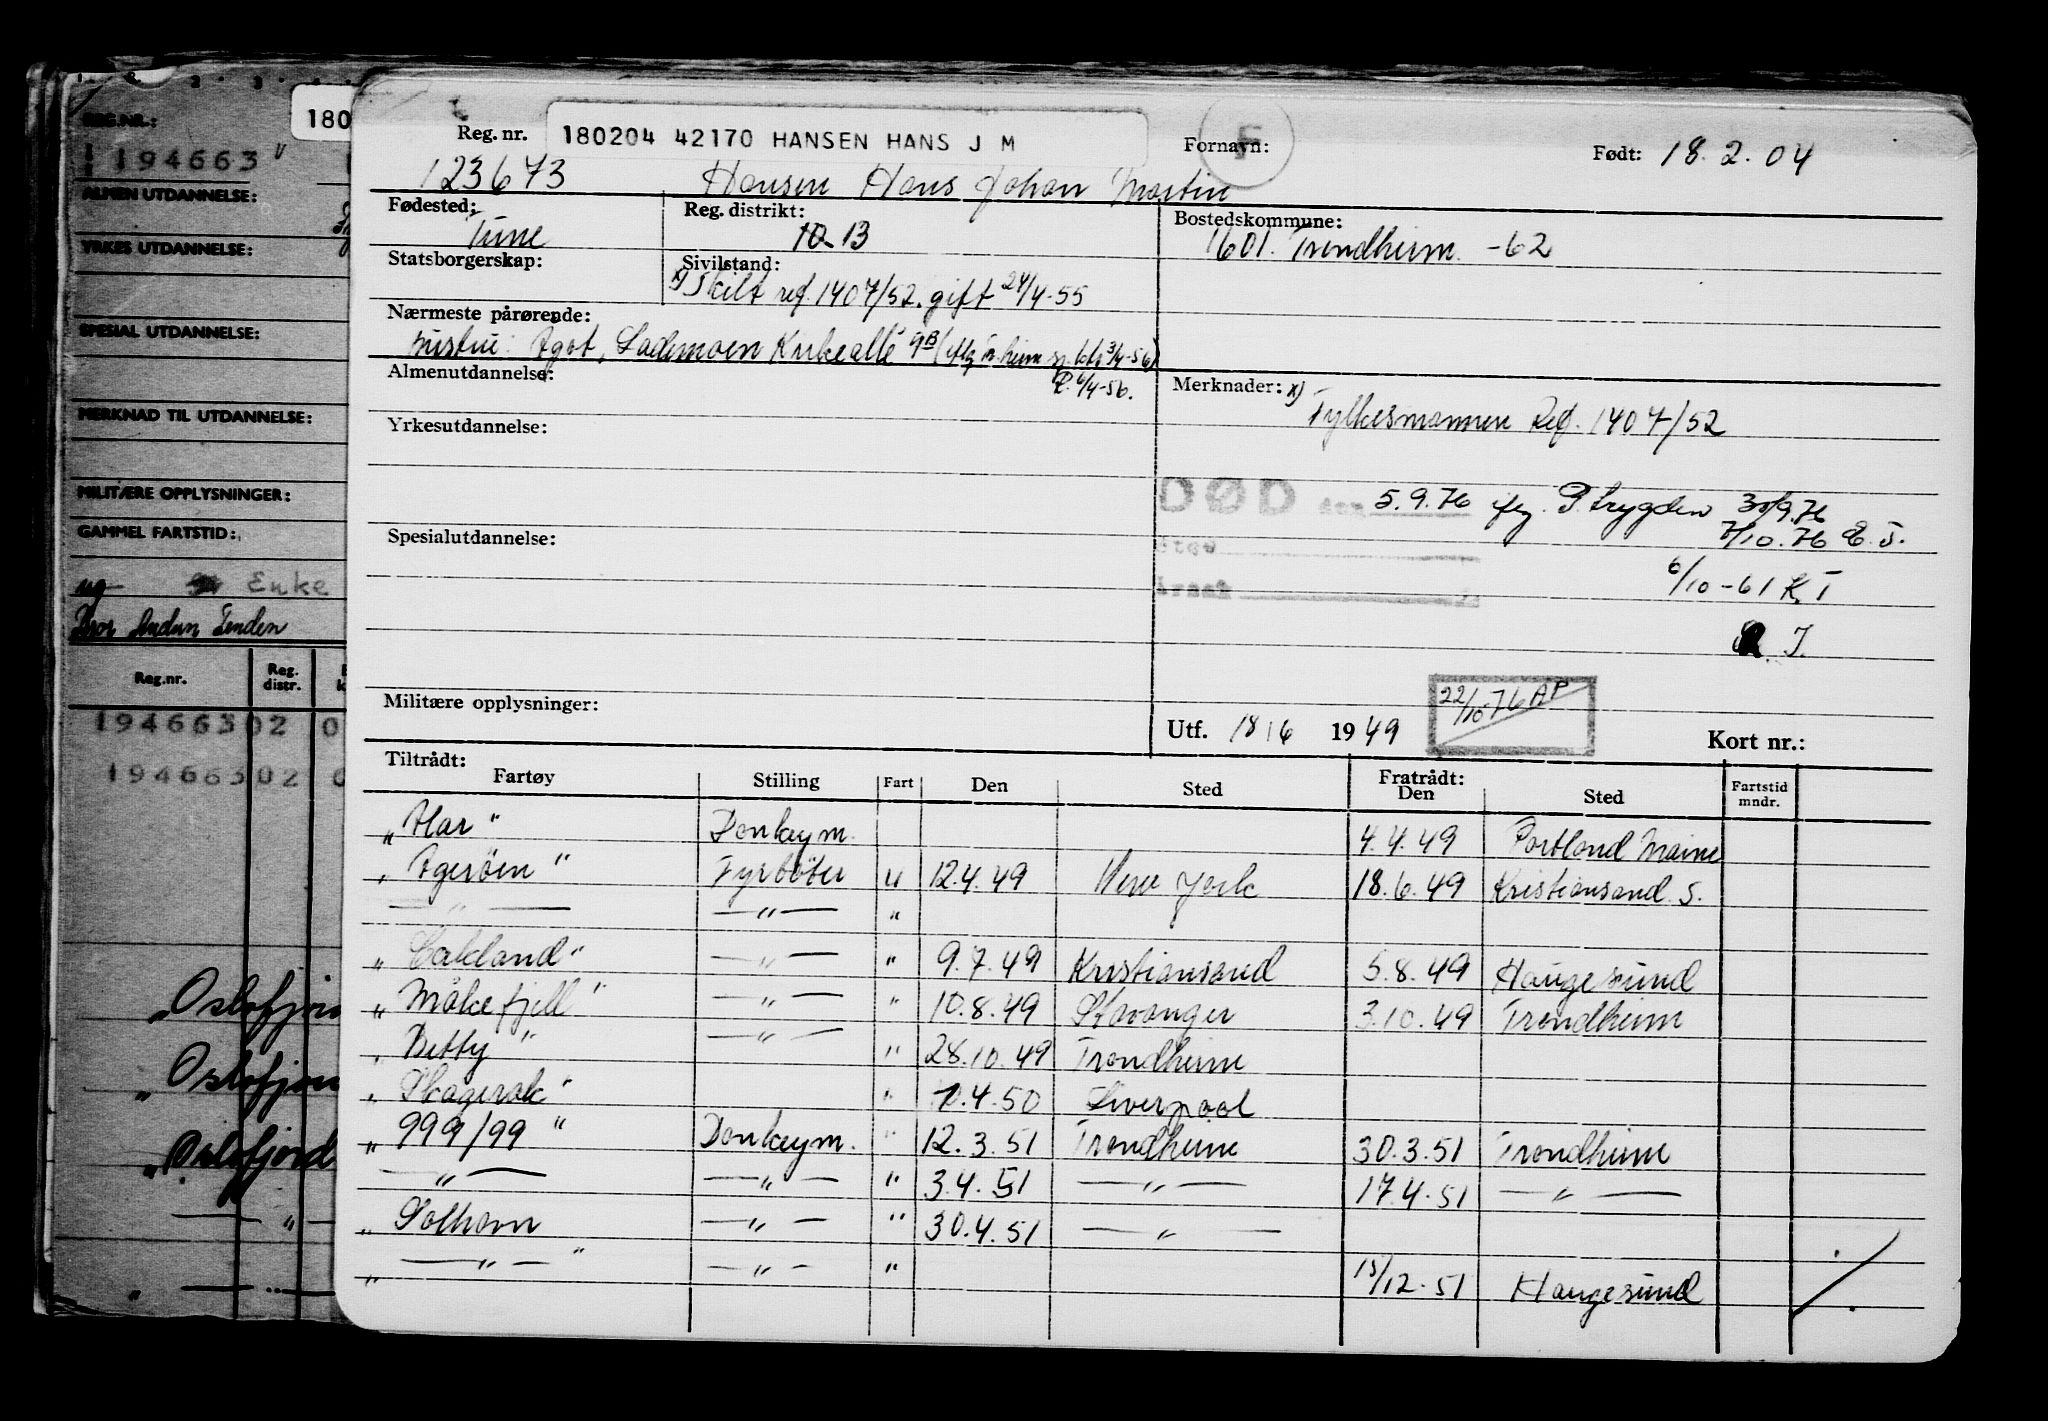 REG.NR.:
194663
ALMEN UTDANNELSE:
YRKES UTDANNELSE:
SPESIAL UTDANNELSE:
MERKNAD TIL UTDANNELSE:
MILITÆRE OPPLYSNINGER:
GAMMEL FARTSTID:
ug Enke
Reg.nr. Reg. distr.
194663 02 0
194663 02 0
„Oslofjor
„Oslofjor
„Oslofjord
— „ —
„ —
180
Reg. nr. 180204 42170 HANSEN HANS J M Fornavn: F Født: 18.2.04
123673 Hansen Hans Johan Martin
Fødested: Tune
Reg. distrikt: 10 13
Bostedskommune: 1601. Trondheim -62
Statsborgerskap:
Sivilstand: x) Skilt ref. 1407/52. gift 24/4-55
Nærmeste pårørende:
hustru: Ågot, Lademoen Kirkeallé 9B
Almenutdannelse: 6/4-56.
Merknader: x) Fylkesmannen Ref. 1407/52
Yrkesutdannelse:
DØD den 5.9.76 flg. P.trygden 30/9.76
7/10.76 E.T.
Sted
Årsak
Spesialutdannelse:
6/10-61 K.T
Militære opplysninger:
Utf. 18/6 1949 22/10-76 AP Kort nr.:
Tiltrådt: Fratrådt:
Fartøy Stilling Fart Den Sted Den Sted Fartstid mndr.
„Alar" Donkeym. 4.4.49 Portland Maine
„Agerøen" Fyrbøter u 12.4.49 New York 18.6.49 Kristiansand S.
— „ — — „ — "
„ Oakland" — „ — " 9.7.49 Kristiansand 5.8.49 Haugesund
„ Måkefjell" — „ — " 10.8.49 Stavanger 3.10.49 Trondheim
„ Betty" — „ — " 28.10.49 Trondheim
„ Skagerak" " 4.50 Liverpool
„ 999/99" Donkeym. " 12.3.51 Trondheim 30.3.51 Trondheim
— „ — — „ — " 3.4.51 — „ — 17.4.51 — „ —
„ Solhavn — „ — " 30.4.51 — „ —
„ — „ — " — „ — " 15/12.51 Haugesund